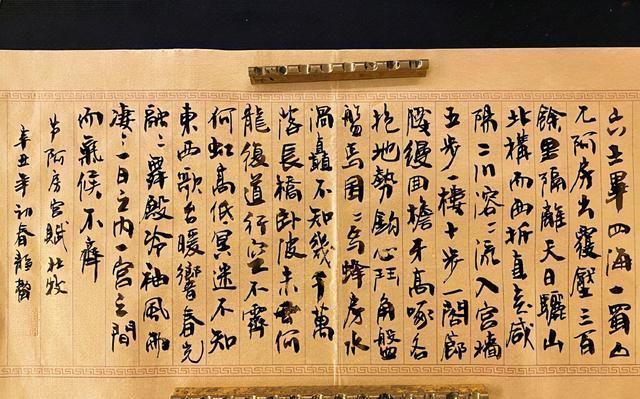 六王畢四海一蜀山
兀阿房出覆壓三百
餘里隔離天日驪山
北構而西折直走咸
陽二川溶〻流入宮墻
五步一樓十步一閣廊
腰縵回檐牙高啄各
抱地勢鈎心鬥角盤
盤焉囷〻焉蜂房水
渦矗不知幾千萬
落長橋卧波未雲何
龍復道行空不霽
何虹高低冥迷不知
東西歌台暖響春光
融〻舞殿冷袖風雨
淒〻一日之內一宮之間
而氣候不齊
节阿房宮賦杜牧
辛丑年初春